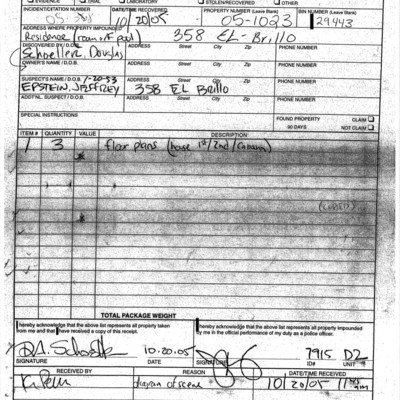 EVIDENCE TRIAL LABORATORY STOLEN/RECOVERED OTHER
INCIDENT/CITATION NUMBER DATE/TIME RECOVERED PROPERTY NUMBER (Leave Blank) BIN NUMBER (Leave Blank)
10/20/05 05-1023 29443
ADDRESS WHERE PROPERTY IMPOUNDED
Residence (room off pool) 358 EL-Brillo
DISCOVERED BY/D.O.B. ADDRESS Street City Zip PHONE NUMBER
Schoettle, Douglas
OWNER'S NAME/D.O.B. ADDRESS Street City Zip PHONE NUMBER
SUSPECT'S NAME/D.O.B. 1-20-53 ADDRESS Street City Zip PHONE NUMBER
EPSTEIN, JEFFREY 358 EL Brillo
ADDT'NL. SUSPECT/D.O.B. ADDRESS Street City Zip PHONE NUMBER
SPECIAL INSTRUCTIONS
FOUND PROPERTY CLAIM
90 DAYS NOT CLAIM
ITEM # QUANTITY VALUE DESCRIPTION
1 3 floor plans (house 1st/2nd/Cabana)
TOTAL PACKAGE WEIGHT
I hereby acknowledge that the above list represents all property taken from me and that I have received a copy of this receipt.
I hereby acknowledge that the above list represents all property impounded by me in the official performance of my duty as a police officer.
10-20-05 7915 D2
SIGNATURE DATE SIGNATURE ID# UNIT
RECEIVED BY REASON DATE/TIME RECEIVED
diagram of scene 10/20/05